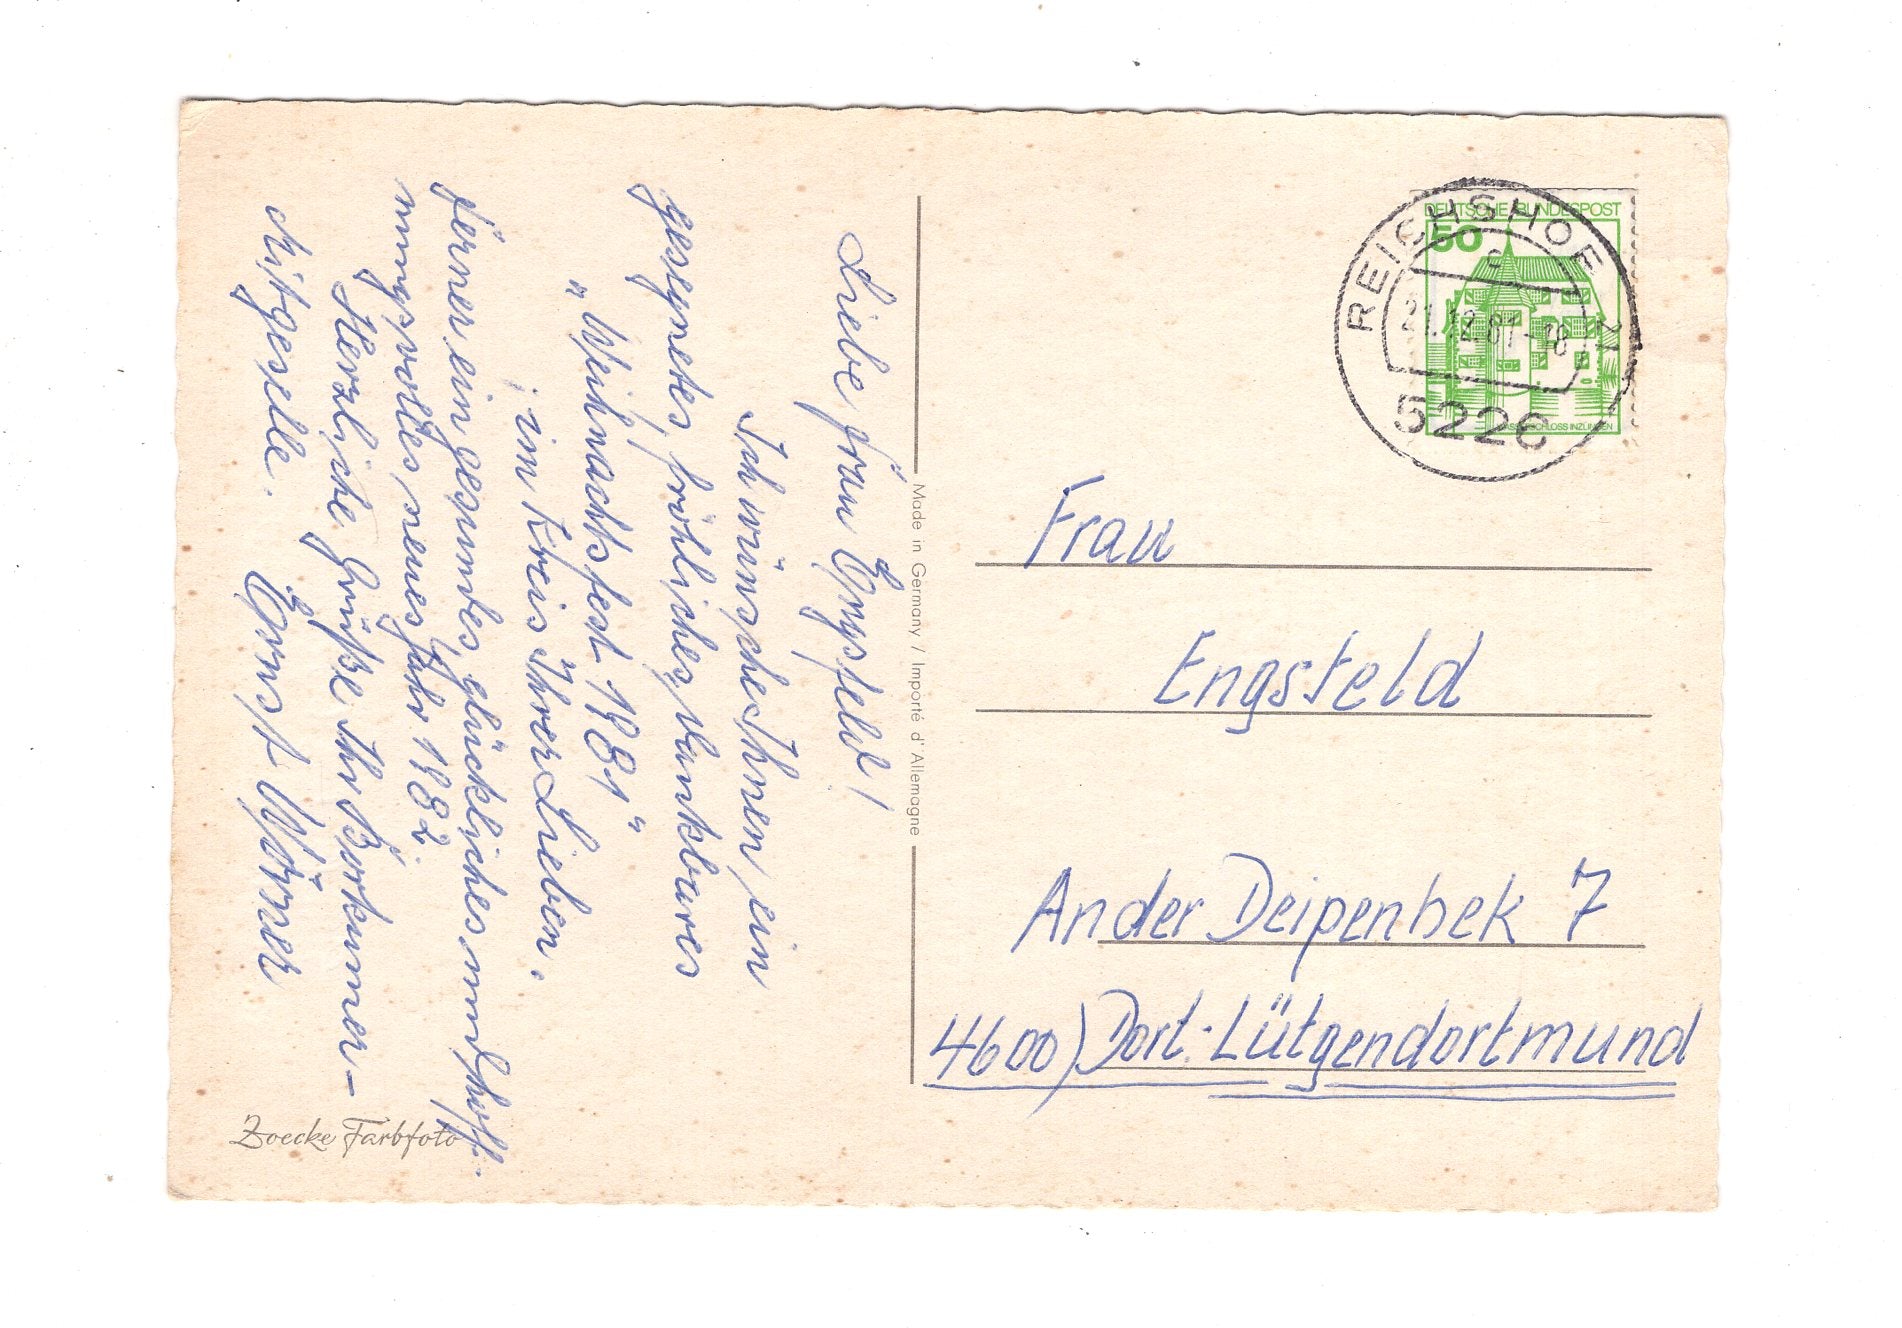 Liebe Frau Engsfeld!
Ich wünsche Ihnen ein
gesegnetes, fröhliches, dankbares
"Weihnachtsfest 1981"
, im Kreis Ihrer Lieben.
Ferner ein gesundes, glückliches und hoff-
nungsvolles, neues Jahr 1982.
Herzliche Grüße Ihr Borkumer-
Mitgeselle. Ernst Wörner
Zoecke Farbfoto
Made in Germany / Importé d'Allemagne
DEUTSCHE BUNDESPOST
50
WASSERSCHLOSS INZLINGEN
REICHSHOF 21
c
21.12.81-18
5226
Frau
Engsfeld
An der Deipenbek 7
4600) Dort.-Lütgendortmund